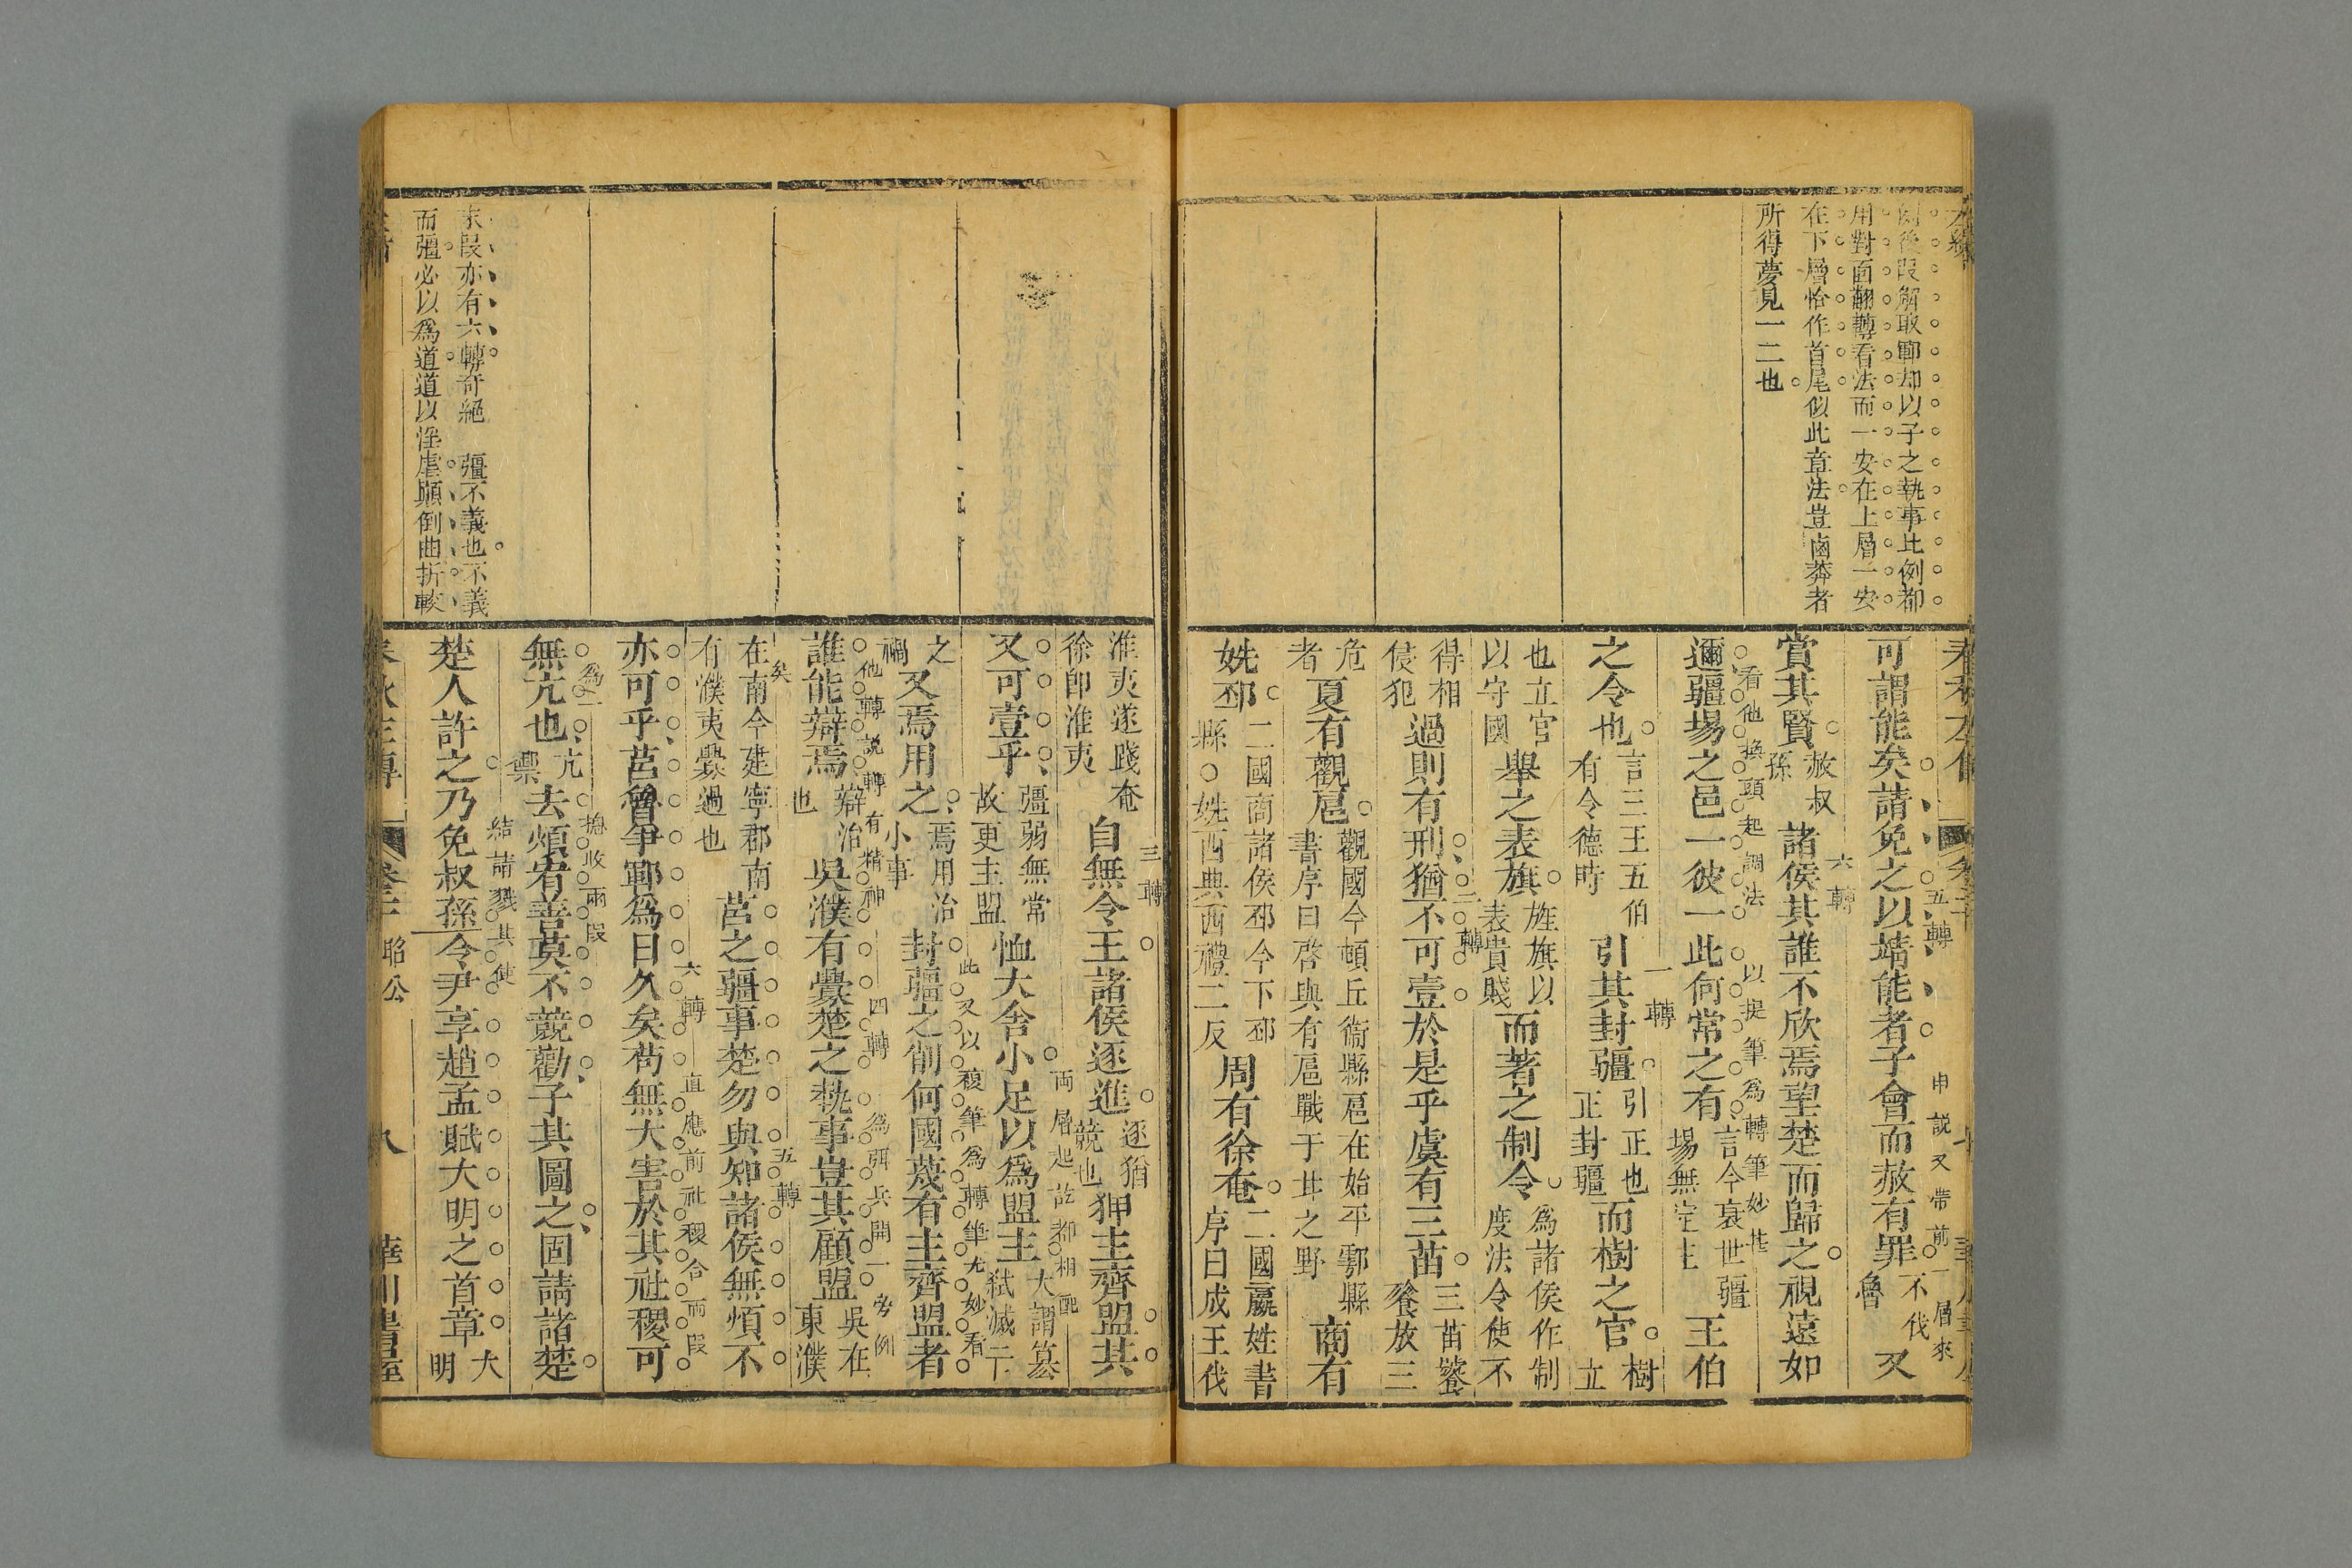 例後段解取鄆却以子之執事比例都
用對面翻轉看法而一安在上層一安
在下層恰作首尾似此章法豈鹵莽者
所得夢見一二也
五轉 申説又帶前一層來
可謂能矣請免之以靖能者子會而赦有罪不伐魯又
六轉
賞其賢赦叔孫諸侯其誰不欣焉望楚而歸之視遠如
看他換頭起調法 以提筆爲轉筆妙甚
邇疆埸之邑一彼一此何常之有言今衰世疆埸無定主王伯
一轉
之令也言三王五伯有令德時引其封疆引正也正封疆而樹之官樹立
也立官以守國舉之表旗旌旗以表貴賤而著之制令爲諸侯作制度法令使不
二轉
得相侵犯過則有刑猶不可壹於是乎虞有三苗三苗饕餮放三
危者夏有觀扈觀國今頓丘衞縣扈在始平鄠縣書序曰啓與有扈戰于甘之野商有
姺邳二國商諸侯邳今下邳縣○姺西典西禮二反周有徐奄二國嬴姓書序曰成王伐
三轉
淮夷遂踐奄徐卽淮夷自無令王諸侯逐進逐猶競也狎主齊盟其
兩層起訖都相配
又可壹乎彊弱無常故更主盟恤大舍小足以爲盟主大謂篡弑滅亡
此又以複筆爲轉筆尤妙看
之禍又焉用之焉用治小事封疆之削何國蔑有主齊盟者
他轉說轉有精神 四轉 爲弭兵開一旁例
誰能辯焉辯治也吳濮有釁楚之執事豈其顧盟吳在東濮
五轉
在南今建寧郡南有濮夷釁過也莒之疆事楚勿與知諸侯無煩不
六轉 直應前社稷合兩段
亦可乎莒魯爭鄆爲日久矣苟無大害於其社稷可
爲一 摠收兩段
無亢也亢禦去煩宥善莫不競勸子其圖之固請諸楚
結請戮其使
楚人許之乃免叔孫令尹享趙孟賦大明之首章大明
末段亦有六轉奇絕 彊不義也不義
而彊必以爲道道以淫虐顚倒曲折較
昭公
八